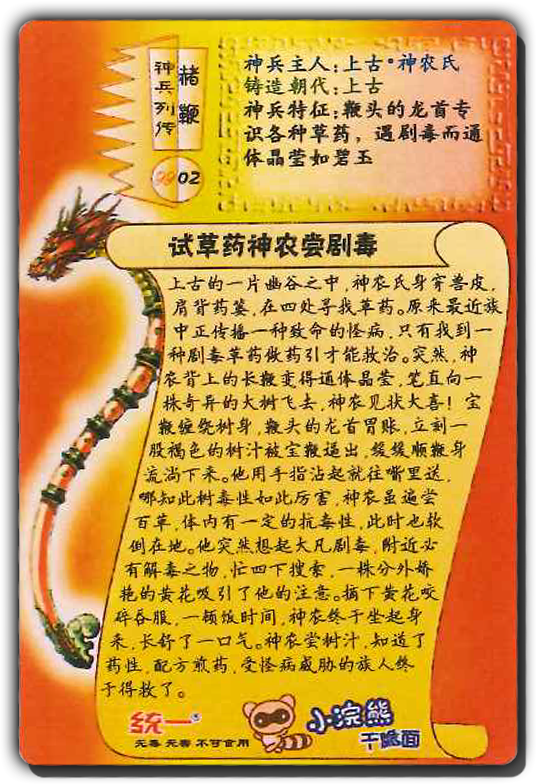 神兵列传
赭鞭
9902
神兵主人：上古·神农氏
铸造朝代：上古
神兵特征：鞭头的龙首专
识各种草药，遇剧毒而通
体晶莹如碧玉
试草药神农尝剧毒
上古的一片幽谷之中，神农氏身穿兽皮，
肩背药篓，在四处寻找草药。原来最近族
中正传播一种致命的怪病，只有找到一
种剧毒草药做药引才能救治。突然，神
农背上的长鞭变得通体晶莹，笔直向一
株奇异的大树飞去，神农见状大喜！宝
鞭缠绕树身，鞭头的龙首冒账，立刻一
股褐色的树汁被宝鞭逼出，缓缓顺鞭身
流淌下来。他用手指沾起就往嘴里送，
哪知此树毒性如此厉害，神农虽遍尝
百草，体内有一定的抗毒性，此时也软
倒在地。他突然想起大凡剧毒，附近必
有解毒之物，忙四下搜索，一株分外娇
艳的黄花吸引了他的注意。摘下黄花咬
碎吞服，一顿饭时间，神农终于坐起身
来，长舒了一口气。神农尝树汁，知道了
药性，配方煎药，受怪病威胁的族人终
于得救了。
统一
无毒 无害 不可食用
小浣熊
干脆面